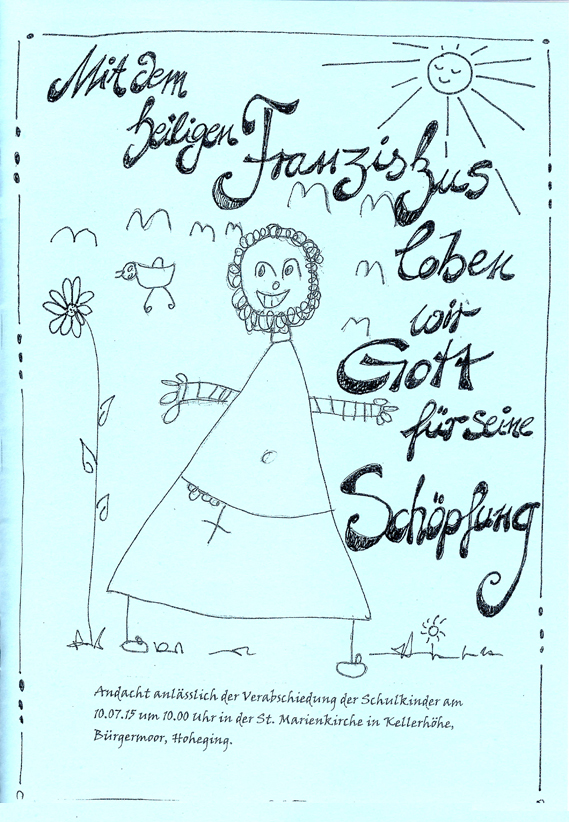 Mit dem
heiligen Franziskus
loben
wir
Gott
für seine
Schöpfung
Andacht anlässlich der Verabschiedung der Schulkinder am
10.07.15 um 10.00 Uhr in der St. Marienkirche in Kellerhöhe,
Bürgermoor, Hoheging.